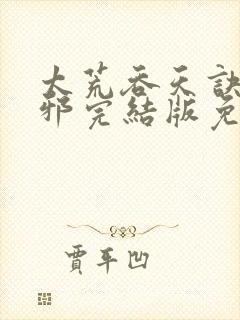 大荒吞天訣
邪完結版免
賈平凹